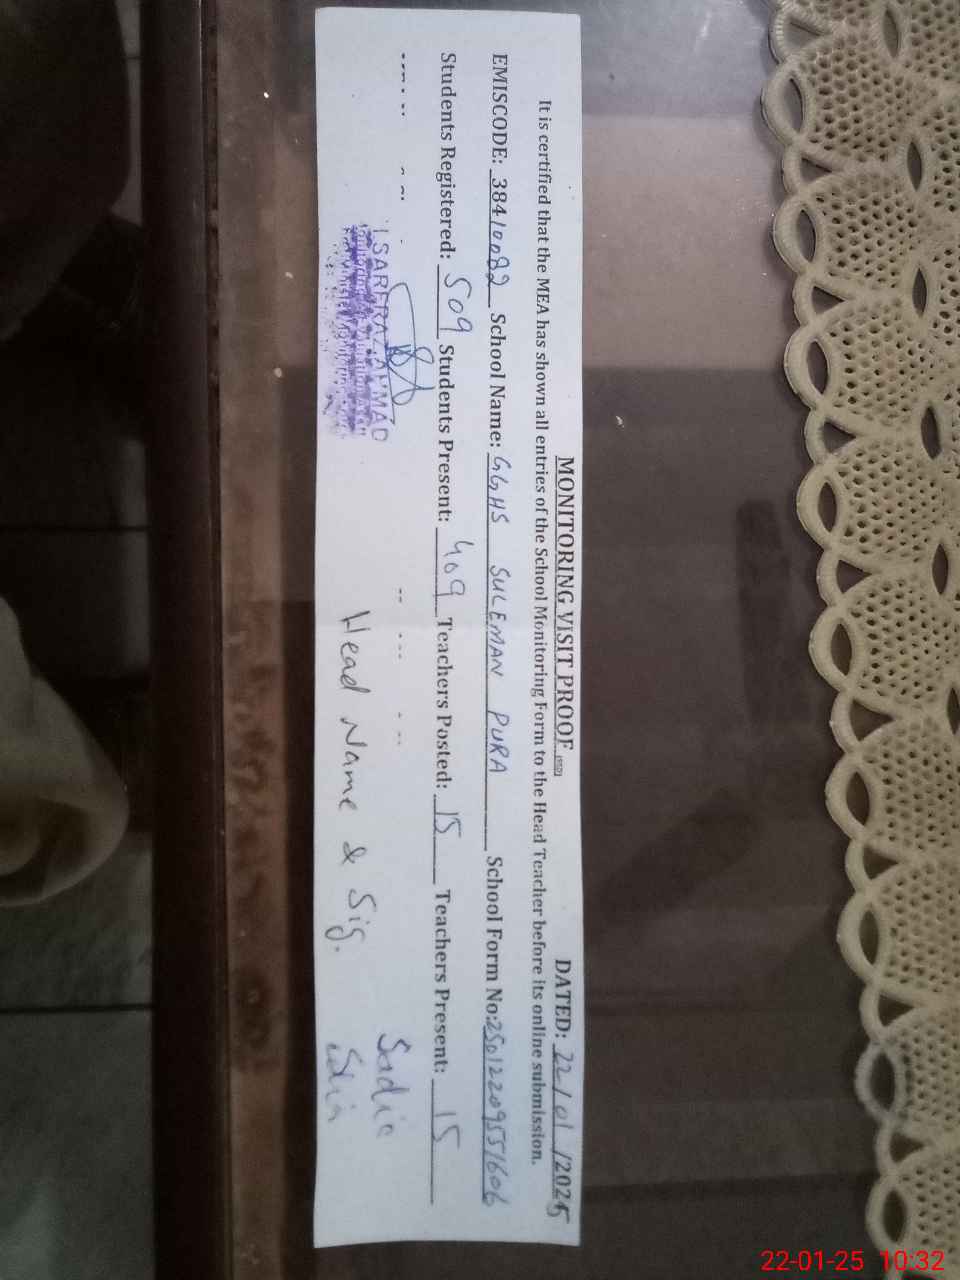 MONITORING VISIT PROOF (SED) DATED: 22/01/2025
It is certified that the MEA has shown all entries of the School Monitoring Form to the Head Teacher before its online submission.
EMISCODE: 38410082 School Name: GGHS SULEMAN PURA School Form No:25012209551606
Students Registered: 509 Students Present: 409 Teachers Posted: 15 Teachers Present: 15
SARFRAZ AHMAD
Head Name & Sig.
Sadia
22-01-25 10:32